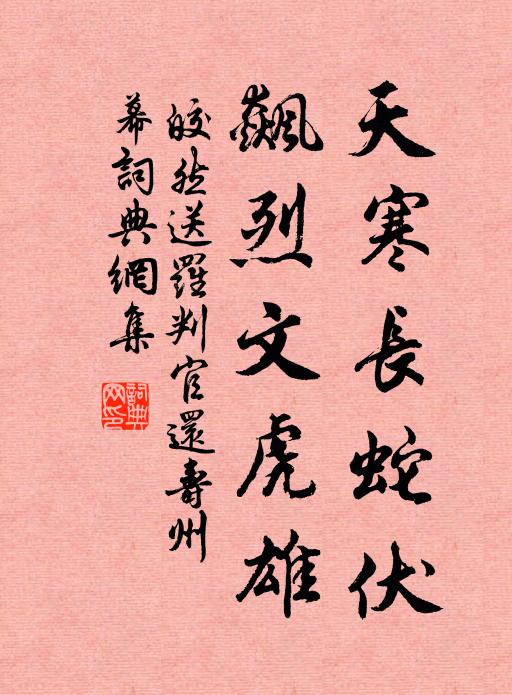 天寒長蛇伏
飆烈文虎雄
皎然送羅判官還壽州
幕詞典網集
詞典网印